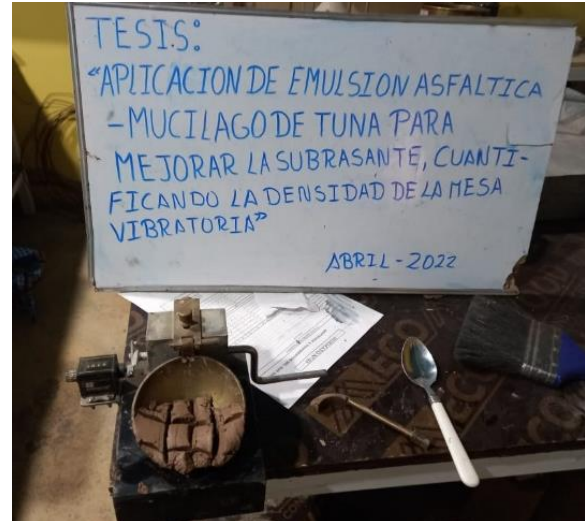 TESIS:
"APLICACION DE EMULSION ASFALTICA
-MUCILAGO DE TUNA PARA
MEJORAR LA SUBRASANTE, CUANTI-
FICANDO LA DENSIDAD DE LA MESA
VIBRATORIA"
ABRIL-2022